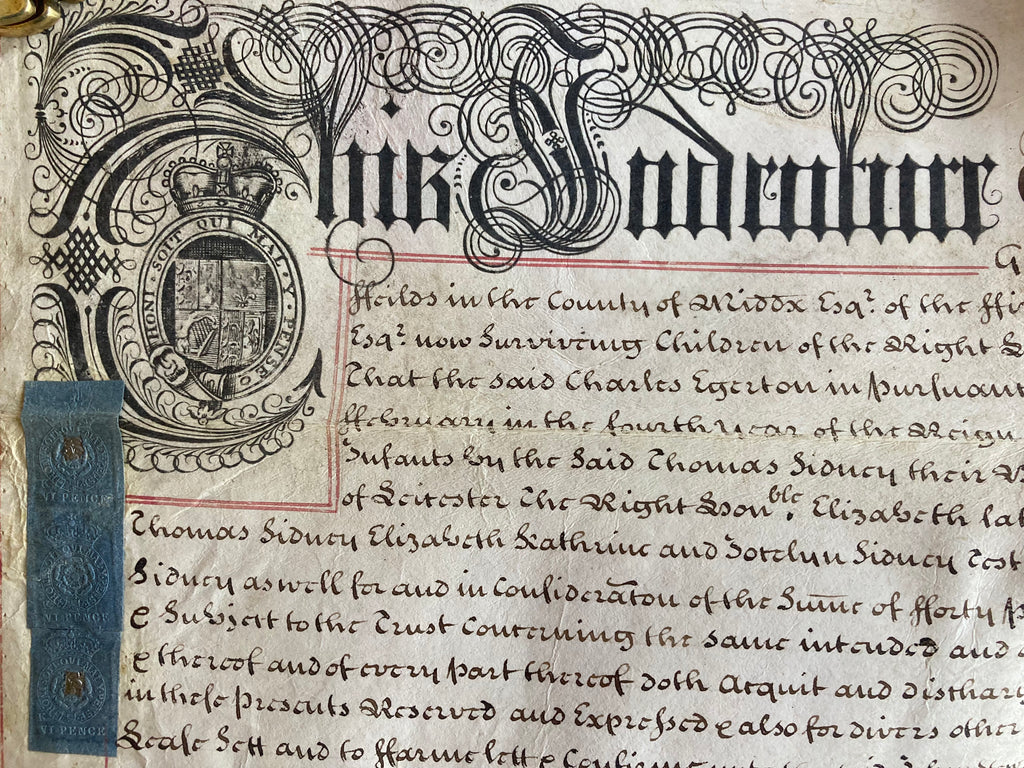 This Indenture
HONI SOIT QUI MAL Y PENSE
G
ffeilds in the County of Middx Esqr. of the ffi
Esqr. now Surviveing Children of the Right
That the said Charles Egerton in pursuant
ffebruary in the fourth Year of the Reign
Infants by the Said Thomas Sidney their
of Leicester The Right Honble. Elizabeth la
Thomas Sidney Elizabeth Kathrine and Jocelyn Sidney
Sidney as well for and in Consideraton of the Sume of fforty
& Subject to the Trust Concerning the same intended and
& thereof and of every part thereof doth Acquit and discharg
in these Presents Reserved and Expressed & also for divers other
Lease Sett and to ffarme lett &
VI PENCE
VI PENCE
VI PENCE